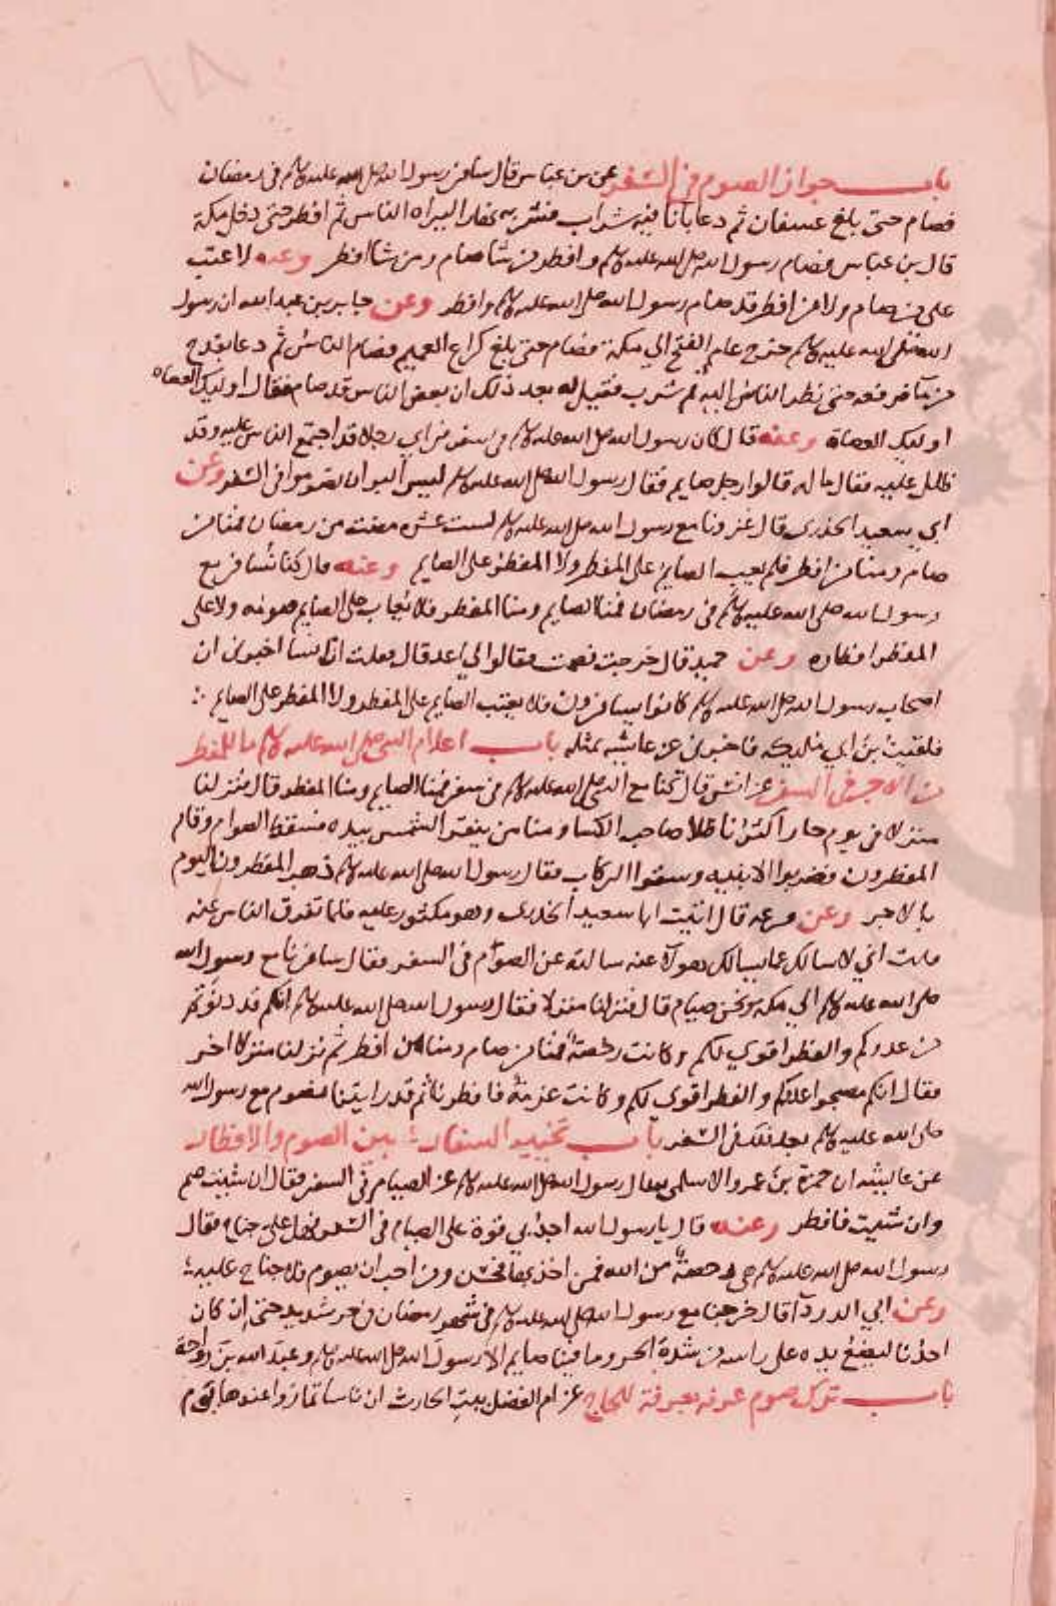 ٦٨
باب جواز الصوم في السفر عن بن عباس قال سافر رسول الله صلى الله عليه وسلم في رمضان
فصام حتى بلغ عسفان ثم دعا بانا فيه شراب فشربه نهارا ليراه الناس ثم افطر حتى دخل مكة
قال بن عباس فصام رسول الله صلى الله عليه وسلم وافطر فمن شا صام ومن شا افطر وعنه لا تعتب
على من صام ولا من افطر قد صام رسول الله صلى الله عليه وسلم وافطر وعن جابر بن عبد الله ان رسول
الله صلى الله عليه وسلم خرج عام الفتح الي مكة فصام حتى بلغ كراع الغميم فصام الناس ثم دعا بقدح
من ما فرفعه حتى نظر الناس اليه ثم شرب فقيل له بعد ذلك ان بعض الناس قد صام فقال اوليك العصاه
اوليك العصاة وعنه قال كان رسول الله صلى الله عليه وسلم في سفر فراي رجلا قد اجتمع الناس عليه وقد
ظلل عليه فقال ما له قالوا رجل صايم فقال رسول الله صلى الله عليه وسلم ليس البر ان تصوموا في السفر وعن
ابي سعيد الخدري قال غزونا مع رسول الله صلى الله عليه وسلم لست عشره مضت من رمضان فمنا من
صام ومنا من افطر فلم يعب الصايم على المفطر ولا المفطر على الصايم وعنه قال كنا نسافر مع
رسول الله صلى الله عليه وسلم في رمضان فمنا الصايم ومنا المفطر فلا يعاب على الصايم صومه ولا على
المفطر افطاره وعن حميد قال خرجت فصمت فقالوا لي اعد قال فقلت ان انسا اخبرني ان
اصحاب رسول الله صلى الله عليه وسلم كانوا يسافرون فلا يعتب الصايم على المفطر ولا المفطر على الصايم
فلقيت بن ابي مليكه فاخبرني عن عايشه بمثله باب اعلام النبي صلى الله عليه وسلم ما للمفطر
من الاجر في السفر عن انس قال كنا مع النبي صلى الله عليه وسلم في سفر فمنا الصايم ومنا المفطر قال فنزلنا
منزلا في يوم حار اكثرنا ظلا صاحب الكسا ومنا من يتقي الشمس بيده فسقط الصوام وقام
المفطرون فضربوا الابنيه وسقوا الركاب فقال رسول الله صلى الله عليه وسلم ذهب المفطرون اليوم
بالاجر وعن قزعه قال اتيت ابا سعيد الخدري وهو مكثور عليه فلما تفرق الناس عنه
قلت اني لا اسالك عما يسالك هولآء عنه سالته عن الصوم في السفر فقال سافرنا مع رسول الله
صلى الله عليه وسلم الي مكه ونحن صيام قال فنزلنا منزلا فقال رسول الله صلى الله عليه وسلم انكم قد دنوتم
من عدوكم والفطر اقوي لكم وكانت رخصة فمنا من صام ومنا من افطر ثم نزلنا منزلا اخر
فقال انكم مصبحوا عدوكم والفطر اقوي لكم وكانت عزمة فافطرنا ثم قد رايتنا نصوم مع رسول الله
صلى الله عليه وسلم بعد ذلك في السفر باب تخيير المسافر بين الصوم والافطار
عن عايشه ان حمزة بن عمرو الاسلمي سال رسول الله صلى الله عليه وسلم عن الصيام في السفر فقال ان شيت صم
وان شيت فافطر وعنه قال يا رسول الله اجد بي قوة على الصيام في السفر فهل علي جناح فقال
رسول الله صلى الله عليه وسلم هي رخصة من الله فمن اخذ بها فحسن ومن احب ان يصوم فلا جناح عليه
وعن ابي الدردآ قال خرجنا مع رسول الله صلى الله عليه وسلم في شهر رمضان في حر شديد حتى ان كان
احدنا ليضع يده على راسه من شدة الحر وما فينا صايم الا رسول الله صلى الله عليه وسلم وعبد الله بن رواحة
باب ترك صوم عرفه بعرفة للحاج عن ام الفضل بنت الحارث ان ناسا تماروا عندها يوم